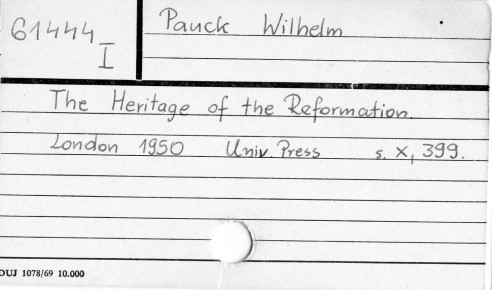 61444
I
Pauck Wilhelm
The Heritage of the Reformation.
London 1950 Univ. Press s. X, 399.
DUJ 1078/69 10.000